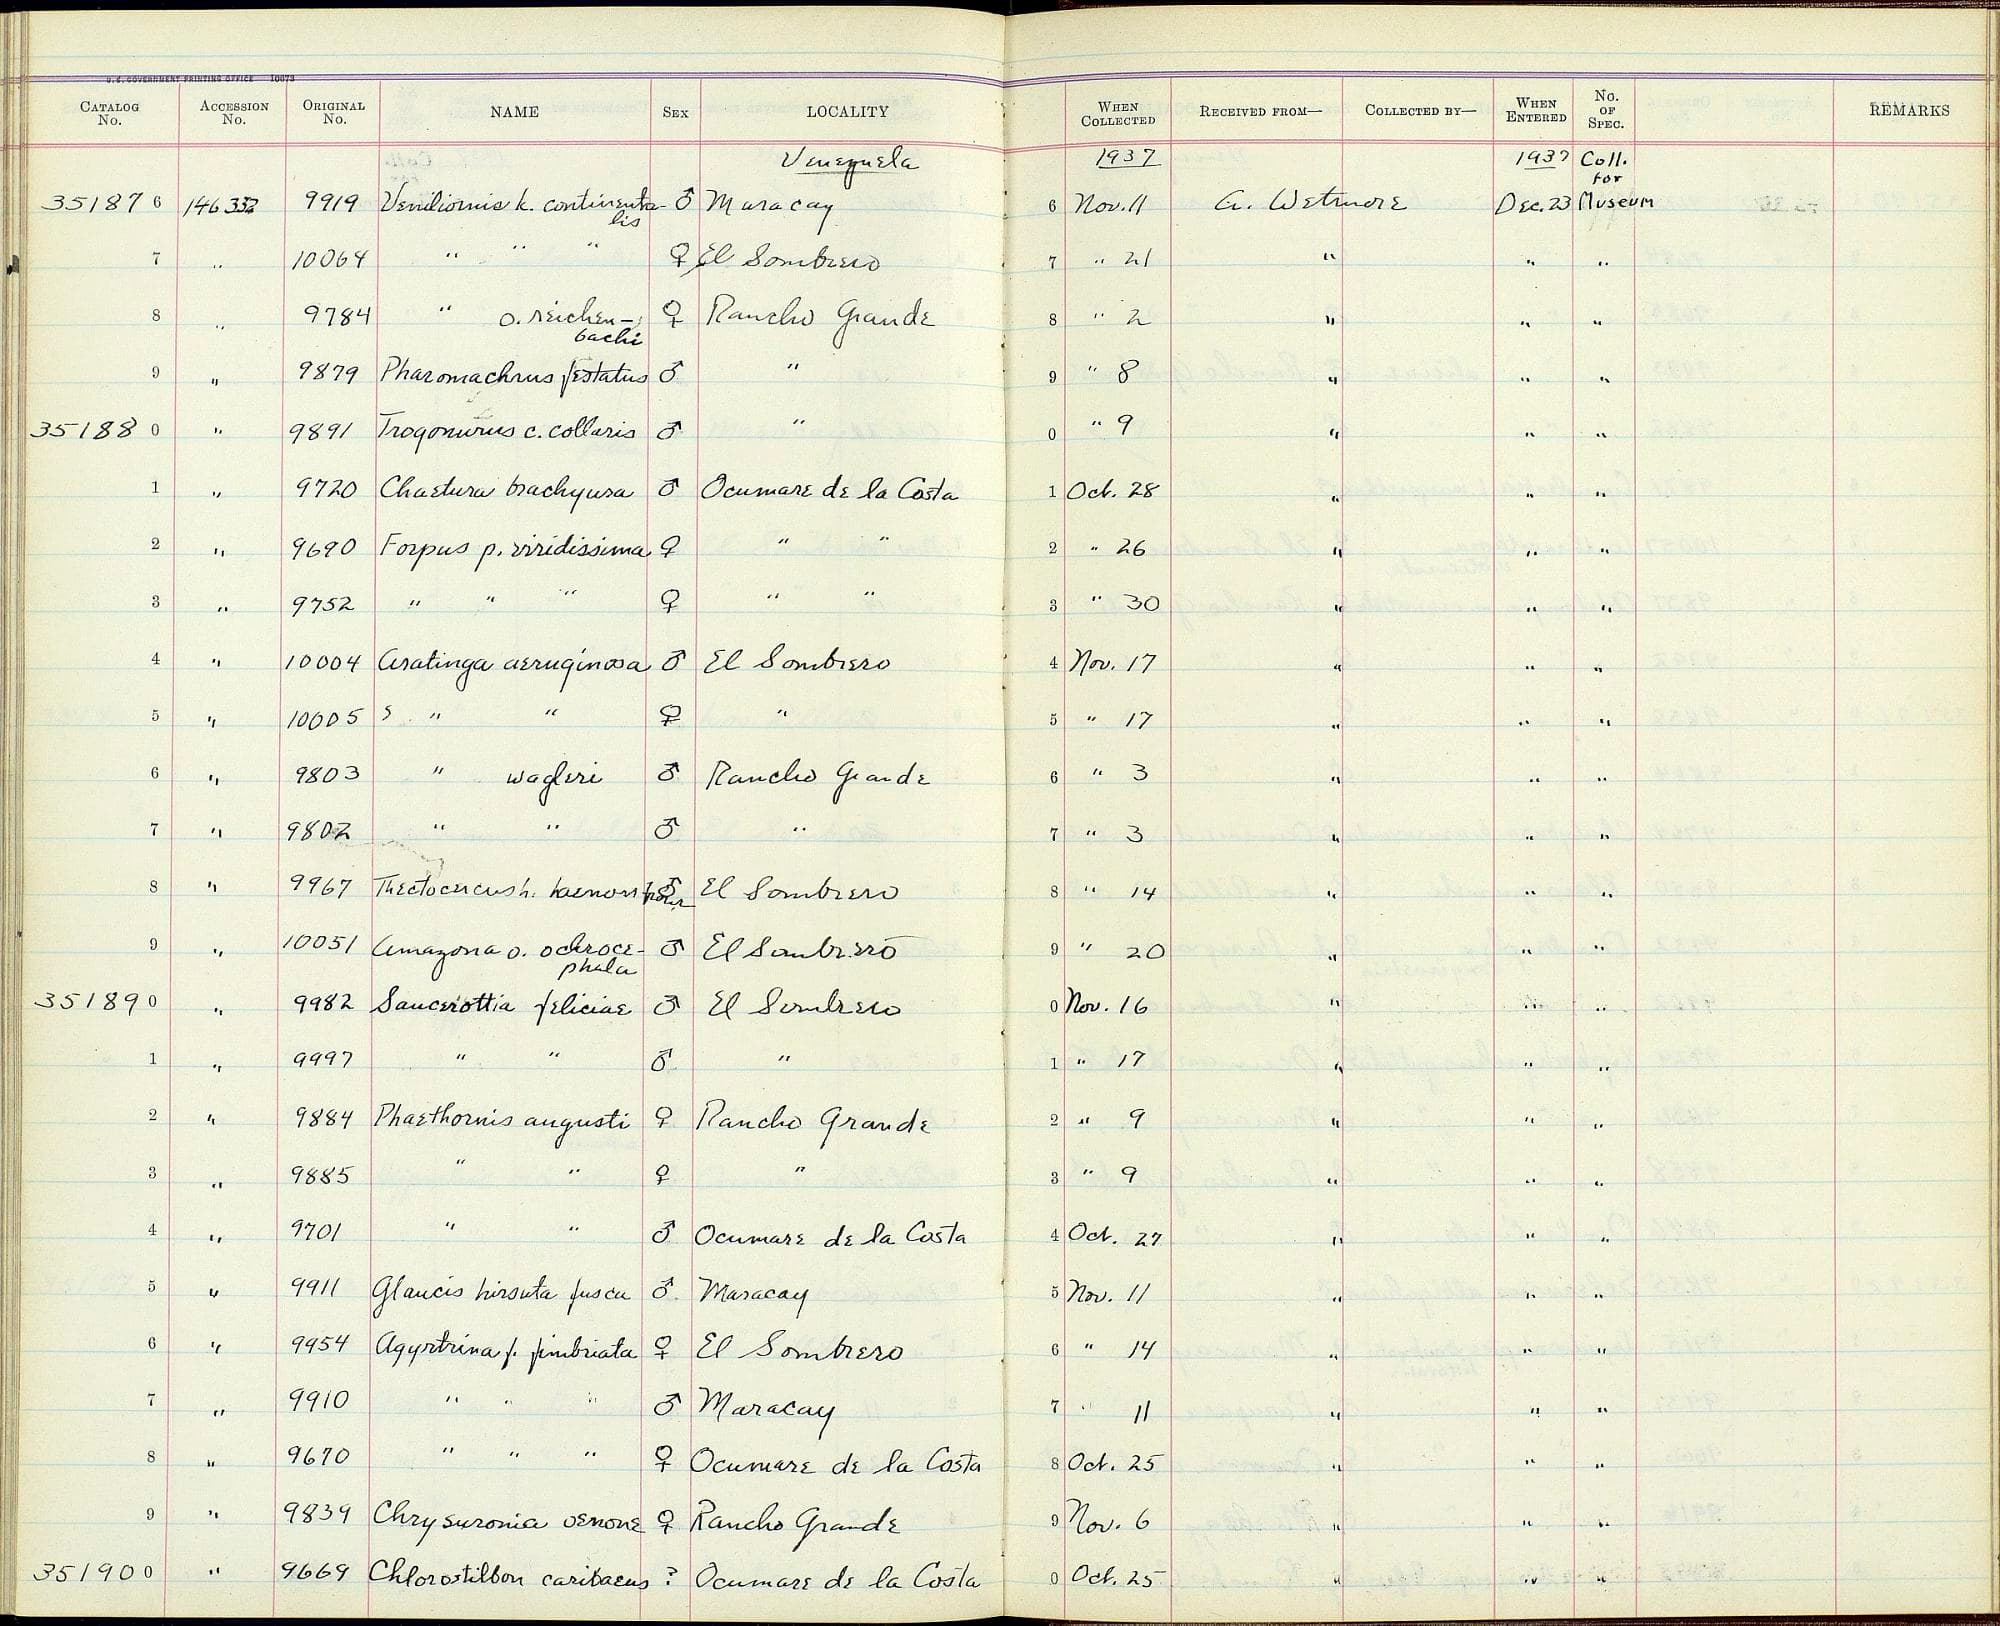 U.S. GOVERNMENT PRINTING OFFICE 10073
CATALOG No. ACCESSION No. ORIGINAL No. NAME SEX LOCALITY WHEN COLLECTED RECEIVED FROM— COLLECTED BY— WHEN ENTERED No. OF SPEC. REMARKS
Venezuela 1937 1937 Coll. for
35187 6 146332 9919 Veniliornis k. continenta- ♂ Maracay 6 Nov. 11 A. Wetmore Dec. 23 Museum
lis
7 " 10064 " " " ♀ El Sombrero 7 " 21 " " "
8 " 9784 " o. reichen- ♀ Rancho Grande 8 " 2 " " "
bachi
9 " 9879 Pharomachrus festatus ♂ " 9 " 8 " " "
35188 0 " 9891 Trogonurus c. collaris ♂ " 0 " 9 " " "
1 " 9720 Chaetura brachyura ♂ Ocumare de la Costa 1 Oct. 28 " " "
2 " 9690 Forpus p. viridissima ♀ " " 2 " 26 " " "
3 " 9752 " " " ♀ " " 3 " 30 " " "
4 " 10004 Aratinga aeruginosa ♂ El Sombrero 4 Nov. 17 " " "
5 " 10005 " " ♀ " 5 " 17 " " "
6 " 9803 " wagleri ♂ Rancho Grande 6 " 3 " " "
7 " 9802 " " ♂ " 7 " 3 " " "
8 " 9967 Thectocercus h. ♂ El Sombrero 8 " 14 " " "
9 " 10051 Amazona o. ochroce- ♂ El Sombrero 9 " 20 " " "
phala
35189 0 " 9982 Saucerottia feliciae ♂ El Sombrero 0 Nov. 16 " " "
1 " 9997 " " ♂ " 1 " 17 " " "
2 " 9884 Phaethornis augusti ♀ Rancho Grande 2 " 9 " " "
3 " 9885 " " ♀ " 3 " 9 " " "
4 " 9701 " " ♂ Ocumare de la Costa 4 Oct. 27 " " "
5 " 9911 Glaucis hirsuta fusca ♂ Maracay 5 Nov. 11 " " "
6 " 9954 Agyrtrina f. fimbriata ♀ El Sombrero 6 " 14 " " "
7 " 9910 " " " ♂ Maracay 7 " 11 " " "
8 " 9670 " " " ♀ Ocumare de la Costa 8 Oct. 25 " " "
9 " 9839 Chrysuronia oenone ♀ Rancho Grande 9 Nov. 6 " " "
35190 0 " 9669 Chlorostilbon caribaeus ? Ocumare de la Costa 0 Oct. 25 " " "